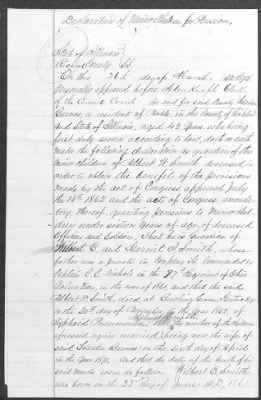 Declaration of Minor Children for Pension.
State of Illinois
Richland County Ss.
On this 26th day of March, AD 1872
personally appeared before Aden Knoph Clerk
of the Circuit Court in and for said County Leander
a resident of Noble, in the County of Richland
and State of Illinois, aged 42 years who being
first duly sworn according to law, doth on oath
make the following declaration as guardian of the
minor children of Albert W. Smith deceased in
order to obtain the benefit of the provisions
made by the act of Congress approved July
the 14th 1862 and the act of Congress amenda-
tory thereof, granting pensions to minor chil-
dren under sixteen years of age, of deceased
Officers and Soldiers, That he is Guardian of
Wilbert E. and Harriet I. Smith, whose
father was a private in Company commanded by
Captain C. C. Nichols in the 27th Regiment of Ohio
Volunteers, in the war of 1861 and that the said
Albert W. Smith, died at Bowling Green, Kentucky
on the 30th day of 1862 of
Typhoid Pneumonia, That the mother of the children
aforesaid again married, being now the wife of
said Leander on the sixth day of April
in the year 1870. And that the date of birth of his
said wards were as follows. Wilbert E. Smith
was born on the 23d day of June AD 1861